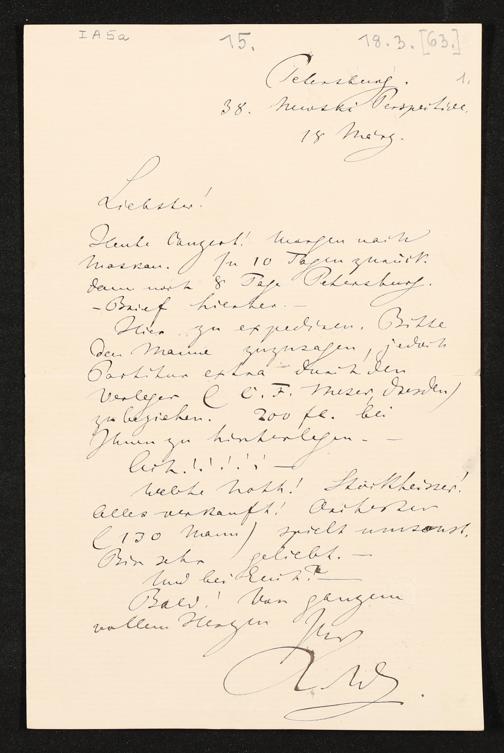 I A 5a 15. 18.3.[63.]
Petersburg. 1.
38. Newski Perspective.
18 März.
Liebster!
Heute Conzert! Morgen nach
Moskau. In 10 Tagen zurück
dann noch 8 Tage Petersburg.
– Brief hierher. –
Hier zu expediren. Bitte
dem Manne zuzusagen, jedoch
Partitur extra durch den
Verleger (C. F. Meser, Dresden)
zu beziehen. 200 fl. bei
Ihnen zu hinterlegen. –
Ach!.!.!.!.! –
Welche Noth! Stockheiser!
Alles verkauft! Orchester
(130 Mann) spielt umsonst.
Bin sehr geliebt. –
Und bei Euch? –
Bald! Von ganzem
vollem Herzen Ihr